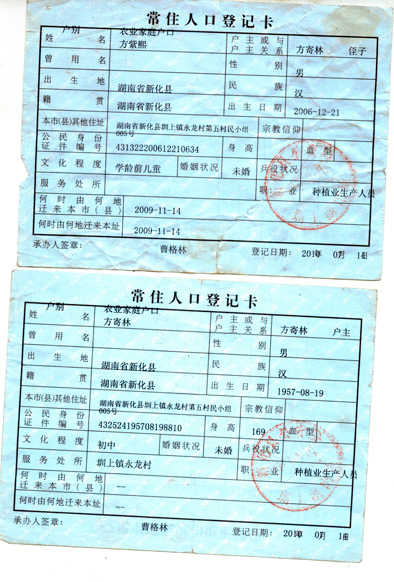 常住人口登记卡
户别 农业家庭户口
姓名 方紫熙 户主或与户主关系 方寄林 侄子
曾用名 性别 男
出生地 湖南省新化县 民族 汉
籍贯 湖南省新化县 出生日期 2006-12-21
本市(县)其他住址 湖南省新化县圳上镇永龙村第五村民小组005号 宗教信仰
公民身份证件编号 431322200612210634 身高 血型
文化程度 学龄前儿童 婚姻状况 未婚 兵役状况
服务处所 职业 种植业生产人员
何时由何地迁来本市(县) 2009-11-14
何时由何地迁来本址 2009-11-14
承办人签章: 曹格林 登记日期:
常住人口登记卡
户别 农业家庭户口
姓名 方寄林 户主或与户主关系 方寄林 户主
曾用名 性别 男
出生地 湖南省新化县 民族 汉
籍贯 湖南省新化县 出生日期 1957-08-19
本市(县)其他住址 湖南省新化县圳上镇永龙村第五村民小组005号 宗教信仰
公民身份证件编号 432524195708198810 身高 169 血型
文化程度 初中 婚姻状况 未婚 兵役状况
服务处所 圳上镇永龙村 职业 种植业生产人员
何时由何地迁来本市(县) --
何时由何地迁来本址 --
承办人签章: 曹格林 登记日期: